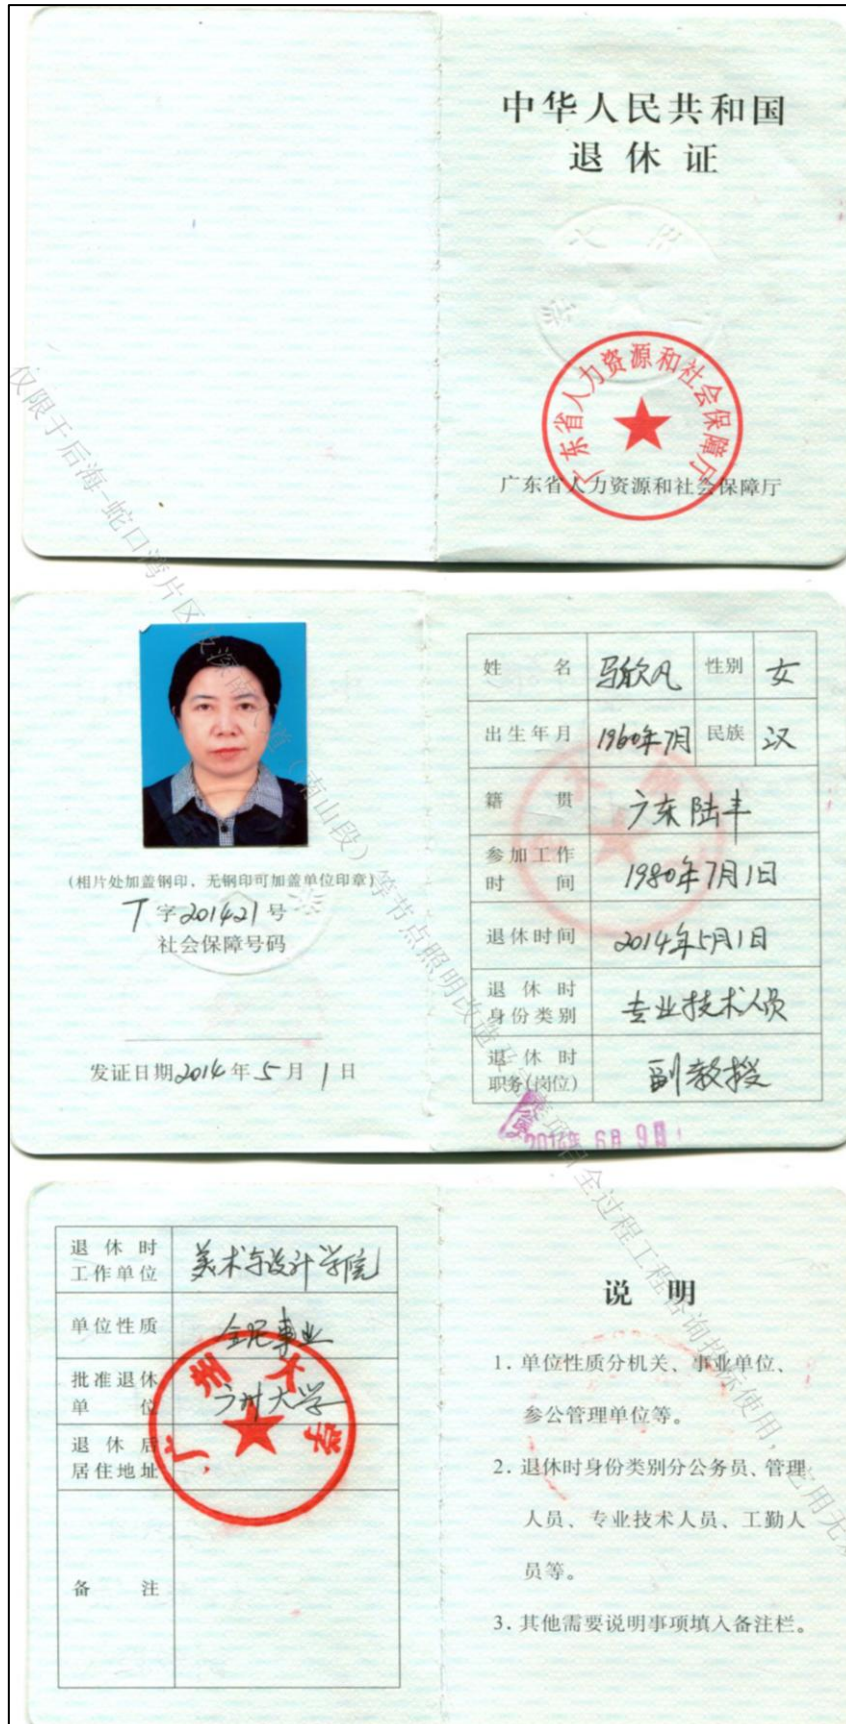 中华人民共和国
退休证
广东省人力资源和社会保障厅
广东省人力资源和社会保障厅
(相片处加盖钢印，无钢印可加盖单位印章)
字201421号
社会保障号码
发证日期2014年5月1日
姓名 马欣凡 性别 女
出生年月 1960年7月 民族 汉
籍贯 广东陆丰
参加工作
时间 1980年7月1日
退休时间 2014年5月1日
退休时
身份类别 专业技术人员
退休时
职务(岗位) 副教授
2014年6月9日
退休时
工作单位 美术与设计学院
单位性质 事业
批准退休
单位 广州大学
退休后
居住地址
广州大学
备注
说明
1. 单位性质分机关、事业单位、
参公管理单位等。
2. 退休时身份类别分公务员、管理
人员、专业技术人员、工勤人
员等。
3. 其他需要说明事项填入备注栏。
仅限于后海-蛇口湾片区及 (南山段)等节点照明改造 项目全过程工程咨询招标使用,